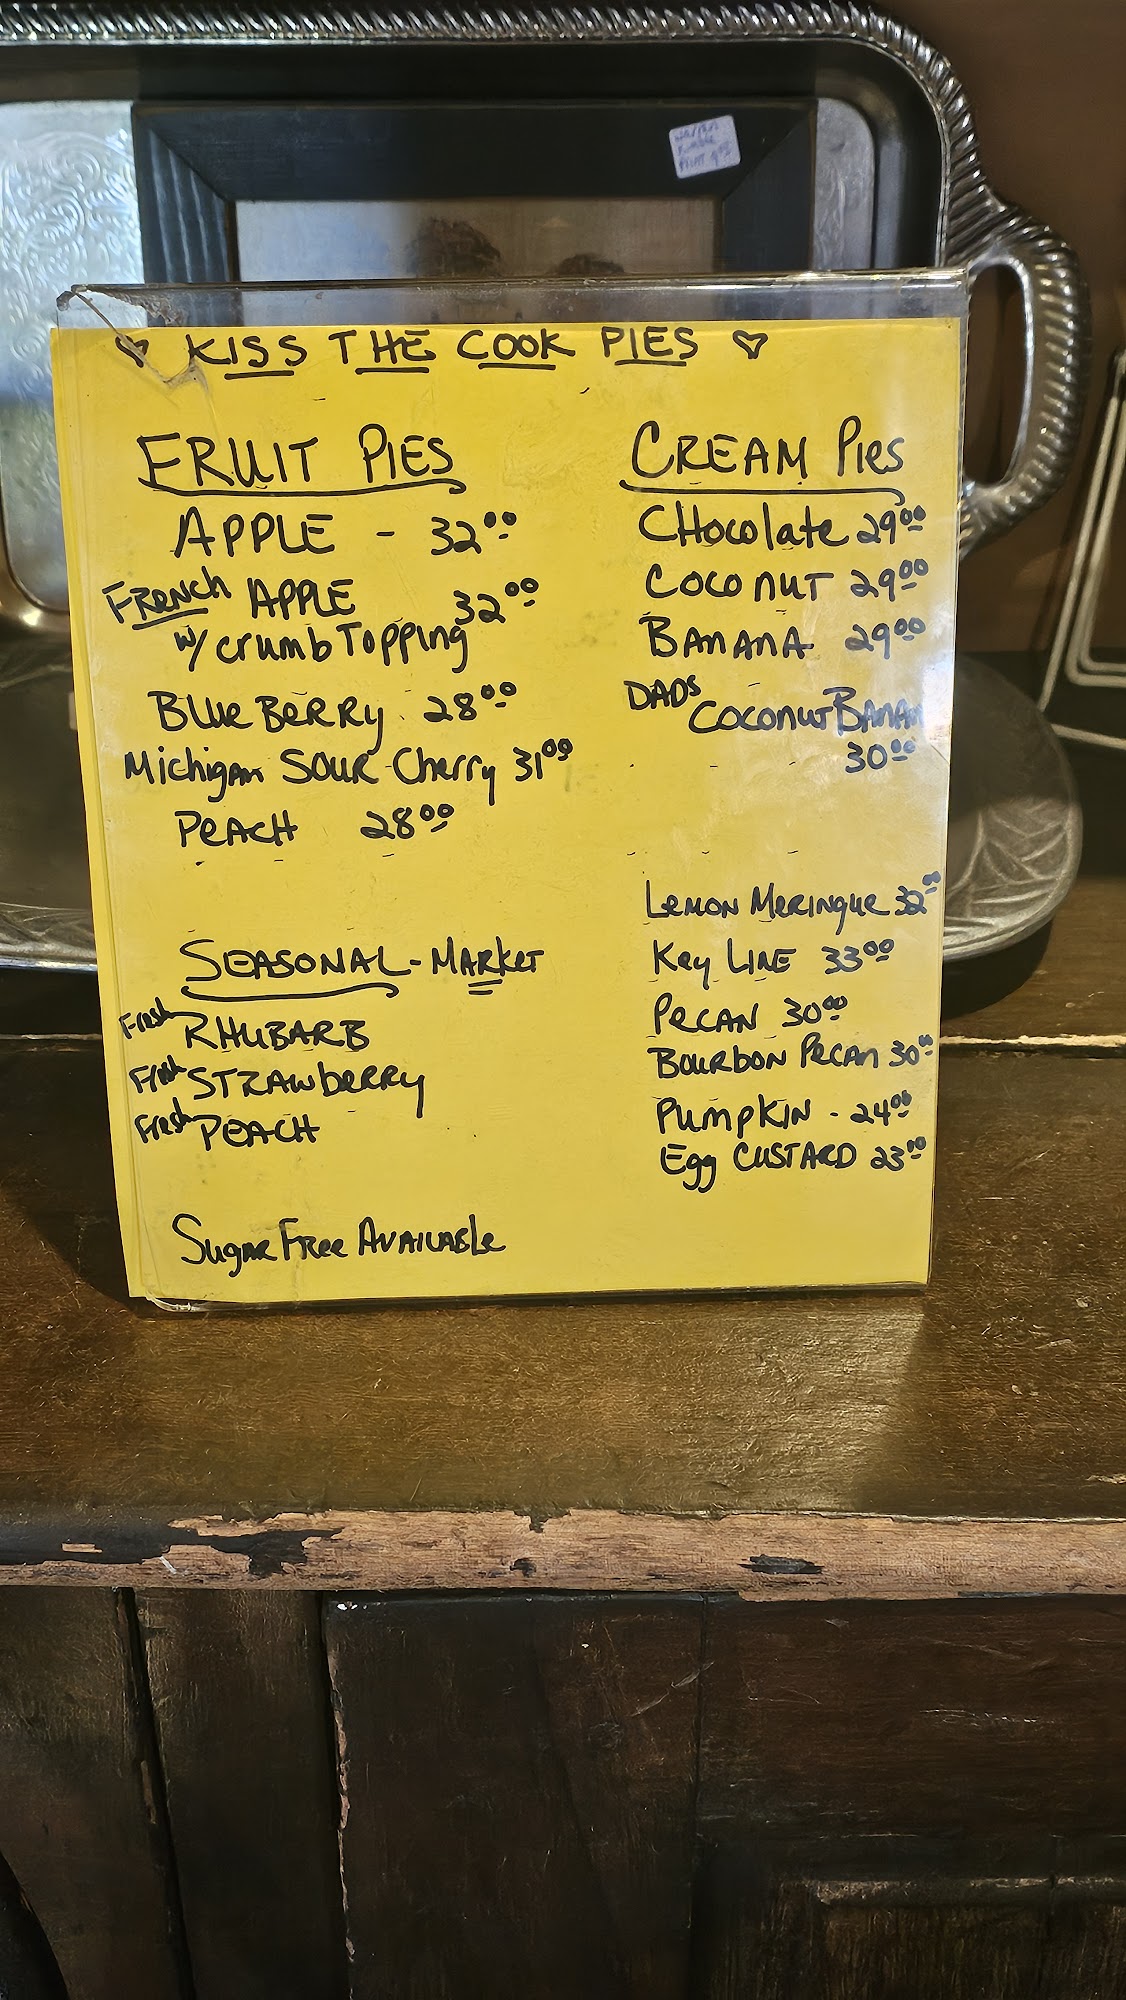 ♡ KISS THE COOK PIES ♡
FRUIT PIES
APPLE - 32⁰⁰
FRENCH APPLE 32⁰⁰
w/ crumb Topping
BLUE BERRY 28⁰⁰
Michigan SOUR Cherry 31⁰⁰
PEACH 28⁰⁰
SEASONAL - MARKET
Fresh RHUBARB
Fresh STRAWberry
Fresh PEACH
Sugar Free Available
CREAM Pies
CHocolate 29⁰⁰
COCONUT 29⁰⁰
BANANA 29⁰⁰
DADs COCONUT BANANA
30⁰⁰
Lemon Meringue 32⁰⁰
Key LIME 33⁰⁰
PECAN 30⁰⁰
Bourbon PECAN 30⁰⁰
PUMPKIN - 24⁰⁰
Egg CUSTARD 23⁰⁰